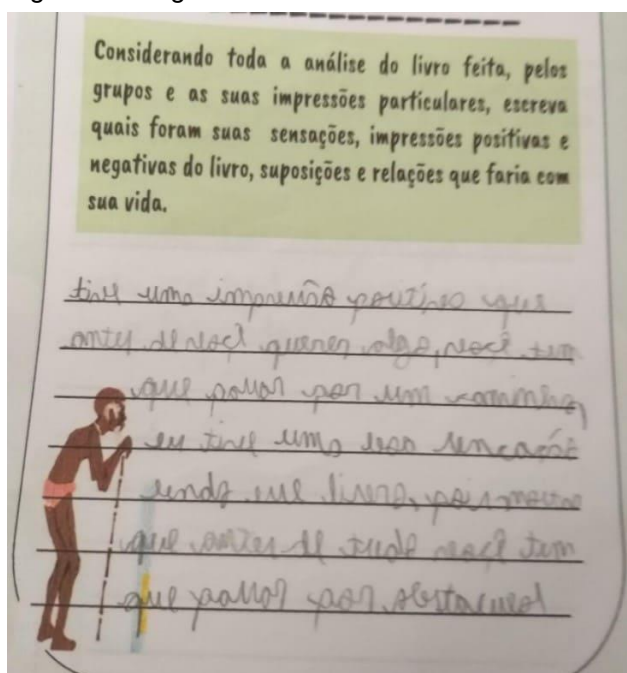 Considerando toda a análise do livro feita, pelos
grupos e as suas impressões particulares, escreva
quais foram suas sensações, impressões positivas e
negativas do livro, suposições e relações que faria com
sua vida.
tive uma impressão positiva que
antes de você querer algo, você tem
que passar por um caminho,
eu tive uma boa sencação
lendo esse livro, pois mostra
que antes de tudo você tem
que passar por obstaculos